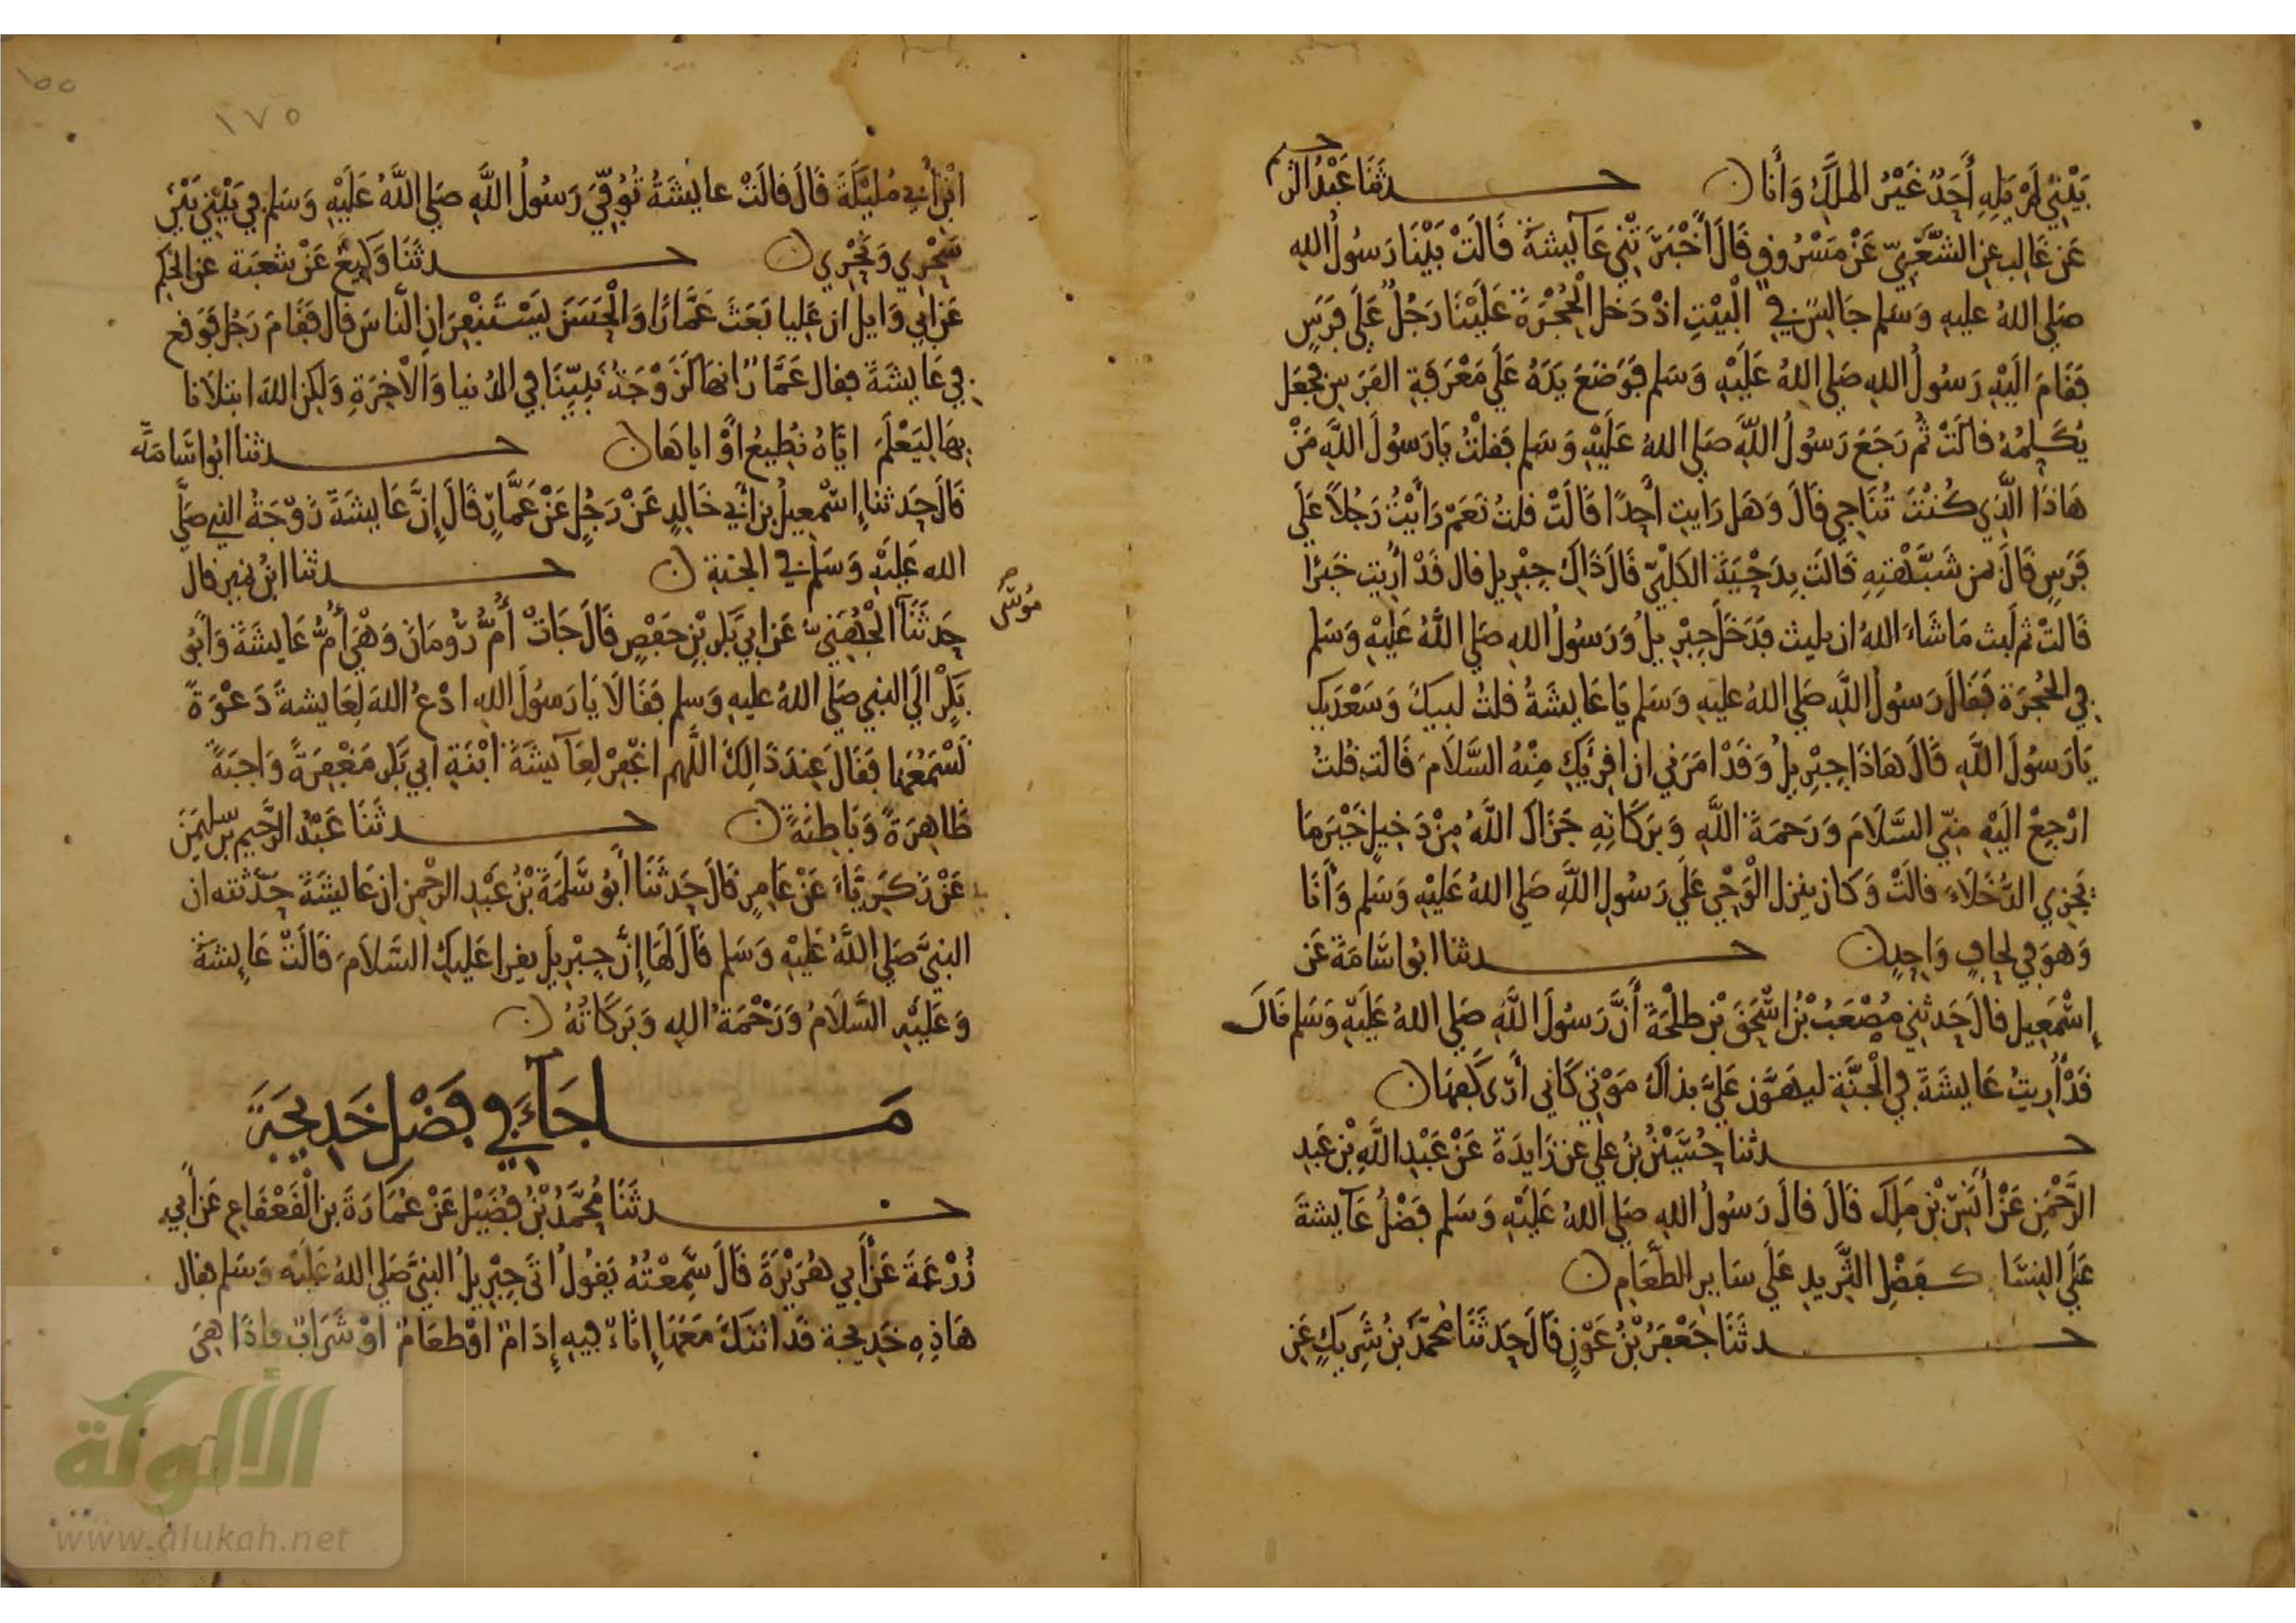 بَيْتِي لَمْ يَلِهِ أَحَدٌ غَيْرُ الملَكِ وَأَنَا ن حـــدثَنَا عَبْدُ الرحيم
عَن غَالِب عن الشَّعْبِيّ عَنْ مَسْرُوقٍ قَالَ أَخْبَرَتْنِي عَايِشَةُ قَالَتْ بَيْنَا رَسُولُ الله
صَلى اللهُ عليهِ وَسَلم جَالِسٌ فِي الْبَيْتِ اذْ دَخل الْحُجْرَةَ عَلَيْنَا رَجُلٌ عَلَى فَرَسٍ
فَقَامَ الَيْهِ رَسُولُ اللهِ صَلى اللهُ عَلَيْهِ وَسَلم فَوَضَعَ يَدَهُ عَلَى مَعْرَفَةِ الفَرَسِ فجَعَل
يُكَلِّمُهُ قالَتْ ثُم رَجَعَ رَسُولُ اللَّهِ صَلى اللهُ عَلَيْهِ وَسَلم فَقلْتُ يَا رَسُولَ اللَّهِ مَنْ
هَاذَا الَّذِي كُنْتَ تُنَاجِي قَالَ وَهَل رَايتِ أحدًا قَالَتْ قلتُ نَعَمْ رَأَيْتُ رَجُلاً عَلَى
فَرَسٍ قَالَ بمن شَبَّهْتِهِ قَالَت بِدَحْيَةَ الكَلْبِيِّ قَالَ ذَاكِ جِبْرِيل قال قَدْ أُرِيتِ خَيْرًا
قَالَتْ ثم لَبث مَا شَاءَ اللهُ ان يلبث فَدَخَلَ جِبْرِيلُ وَرَسُولُ اللهِ صَلى اللَّهُ عَلَيْهِ وَسَلم
فِي الحُجْرَة فَقَالَ رَسُولُ اللَّهِ صَلى اللهُ عليَهِ وَسَلم يَا عَايِشَةُ قلتُ لبيكَ وَسَعْدَيك
يَا رَسُولَ اللَّهِ قَالَ هَاذَا جِبْرِيلُ وَقَدْ امَرَنِي ان اقرِئَكِ مِنْهُ السَّلَامَ قَالَت قلتُ
ارْجِعْ الَيْهِ مِنّي السَّلَامَ وَرَحمَةَ اللَّهِ وَبَرَكَاتِهِ جَزَاكَ اللَّهُ مِنْ دَخِيلٍ خَيْرَ مَا
يَجْزِي الدُّخَلَاءَ قَالَتْ وَكان ينزل الْوَحْي عَلَى رَسُولِ اللَّهِ صَلى اللهُ عَلَيْهِ وَسَلم وَأَنَا
وَهوَ في لِحَافٍ وَاحِدٍ ن حـــدثنا ابُو اسَامَةَ عَن
إسْمَعِيل قالَ حَدثني مُصْعَبُ بْنُ اسْحَقَ بْنِ طلْحَةَ أَنَّ رَسُولَ اللَّهِ صَلى اللهُ عَلَيْهِ وَسَلم قَالَ
قَدْ أُرِيتُ عَايِشَةَ فِي الْجَنَّةِ ليهَوَّن عَلَيَّ بذاكَ مَوْتِي كَانِي أرَى كَفهَا ن
حـــدثنا حُسَيْنُ بنُ علي عن زَايِدَةَ عَنْ عَبْدِ اللَّهِ بْنِ عَبدِ
الرَّحْمَنِ عَنْ أَنَسِ بْنِ مَلِك قَالَ قالَ رَسُولُ اللهِ صَلى اللهُ عَلَيْهِ وَسَلم فَضْلُ عَايِشةَ
عَلَى النِسَا كـفضْلِ الثَّرِيدِ عَلَى سَايِرِ الطَّعَامِ ن
حـــدثَنَا جَعْفَرُ بْنُ عَوْنٍ قَالَ حَدثَنَا مُحمَّدُ بنُ شَرِيكٍ عَنِ
١٧٥
ابْنِ أَبِي مُلَيْكَةَ قَالَ قالَتْ عايشَةُ تُوُفّيَ رَسُولُ اللَّهِ صَلى اللَّهُ عَلَيْهِ وَسَلم في بَيْتِي بَيْنَ
سَحْرِي وَنَحْرِي ن حـــدثَنَا وَكِيعٌ عَنْ شعبَة عن الحكَم
عَن ابي وَايل ان عَلِيا بَعَثَ عَمَّارًا وَالْحَسَنَ يَسْتَنْفِرَانِ النَّاسَ قال فَقَامَ رَجُل فَوَقع
فِي عَايِشَةَ فقال عَمَّارٌ انهَا لَزَوْجَةُ نَبِيِّنَا فِي الدُنيا وَالْآخِرَةِ وَلَكِن اللهَ ابتلَانا
بِهَا لِيَعْلَمَ ايَّاهُ نُطِيعُ أوْ ايا هَا ن حـــدثنا ابُو اسَامَةَ
قَالَ حَدثنا إسْمعِيلُ بن أَبِي خَالِدٍ عَنْ رَجُلٍ عَنْ عَمَّارٍ قَالَ إِنَّ عَايِشَةَ زَوْجَةُ النبي صَلَّى
الله عَلَيْهِ وَسَلم فِي الجَنةِ ن حـــدثنا ابنُ نمير قال
حَدثَنَا الْجُهَنِيّ عَن ابِي بَكر بْنِ حَفْصٍ قَالَ جَاتْ أُمُّ رُومَانَ وَهْيَ أُمُّ عَايشَةَ وَأَبُو
مُوسَى
بَكْرٍ الَى النبي صَلى اللهُ عليهِ وَسَلم فَقَالَا يَا رَسُولَ اللهِ ادْعُ اللهَ لِعَايشةَ دَعْوَةً
نَسْمَعُهَا فَقَالَ عِندَ ذَالِكَ اللَّهُم اغْفِرْ لِعَايشَةَ ابْنَةِ ابِي بَكر مَغْفِرَةً وَاجبَةً
ظَاهِرَةً وَبَاطِنَةً ن حـــدثَنَا عَبْدُ الرَّحِيم بن سليمَنَ
عَنْ زَكَرِيَّاءَ عَنْ عَامِرٍ قَالَ حَدثَنَا أَبُو سَلَمَةَ بْنُ عَبْدِ الرحْمن ان عَايشَةَ حَدَّثته ان
النبيَّ صَلى اللَّهُ عَلَيْهِ وَسَلم قَالَ لَهَا إِنَّ جِبْرِيلَ يقرا عَلَيكِ السَّلَامَ قَالَتْ عَايشَةُ
وَعَلَيْهِ السَّلَامُ وَرَحْمَةُ اللهِ وَبَرَكَاتُهُ ن
مَـــا جَآءَ فِي فَضْلِ خَدِيجَةَ
حـــدثَنَا مُحَمَّدُ بْنُ فُضَيْل عَنْ عُمَارَةَ بن الْقَعْقَاعِ عَن أَبِي
زُرْعَةَ عَنْ أَبِي هُرَيْرَةَ قَالَ سَمِعْتُهُ يَقولُ اتى جِبْرِيلُ النبيَّ صَلى اللهُ عَلَيْهِ وَسَلم فقال
هَاذِهِ خَدِيجة قد اتتكَ مَعَهَا إِنَاءٌ فِيهِ إِدَامٌ اوْ طعَامٌ اوْ شَرَابٌ فاذَا هِيَ
الألوكة
www.alukah.net